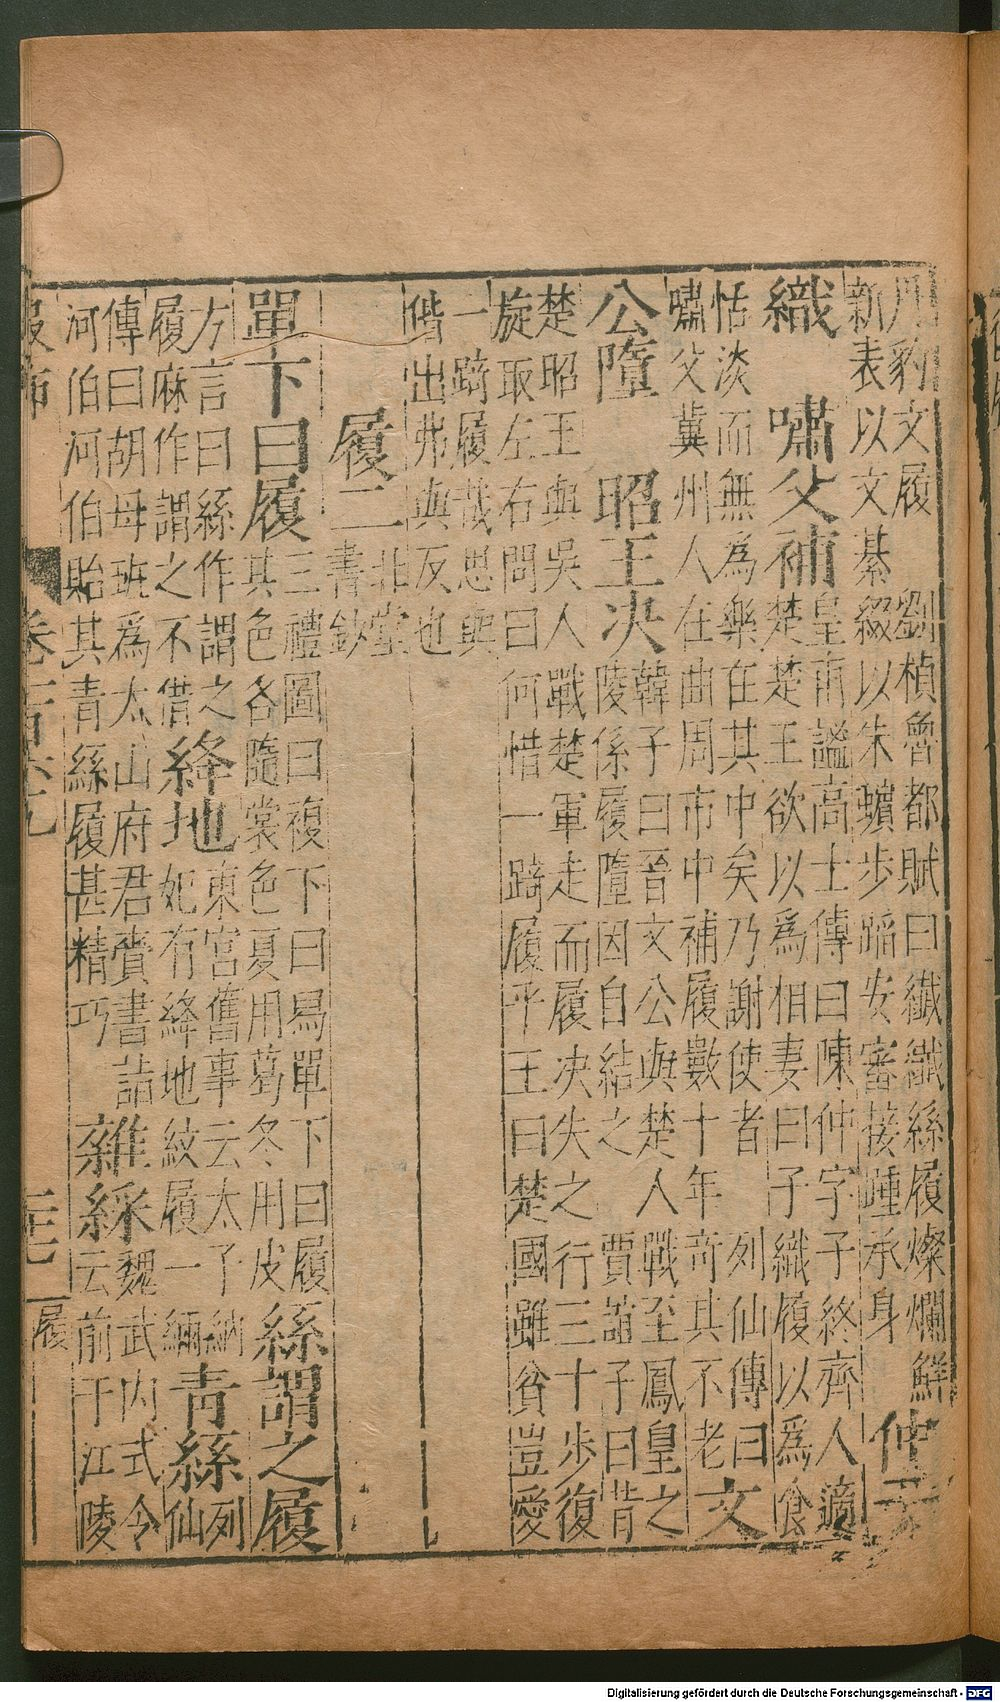 用豹文履　劉楨魯都賦曰纖纖絲履燦爛鮮
新表以文綦綴以朱蠙步蹈安審接踵承身
仲子
織　嘯父補
皇甫謐高士傳曰陳仲字子終齊人適
楚楚王欲以爲相妻曰子織履以爲食
恬淡而無為樂在其中矣乃謝使者　列仙傳曰
嘯父冀州人在曲周市中補履數十年奇其不老
文
公墮　昭王決
韓子曰晉文公與楚人戰至鳳皇之
陵係履墮因自結之　賈誼子曰昔
楚昭王與吳人戰楚軍走而履决失之行三十步復
旋取左右問曰何惜一踦履乎王曰楚國雖貧豈愛
一踦履哉思與
偕出弗與反也
履二
北堂
書鈔
單下曰履
三禮圖曰複下曰舄單下曰履
其色各隨裳色夏用葛冬用皮
絲謂之履
方言曰絲作謂之
履麻作謂之不借
絳地
東宮舊事云太子納
妃有絳地紋履一緉
青絲
列
仙
傳曰胡母班爲太山府君賫書詣
河伯河伯貽其青絲履甚精巧
雜綵
魏武内式令
云前于江陵
服飾
履
Digitalisierung gefördert durch die Deutsche Forschungsgemeinschaft - DFG